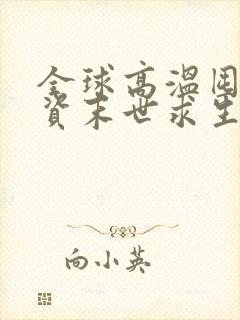 全球高温囤
资末世求生
向小英